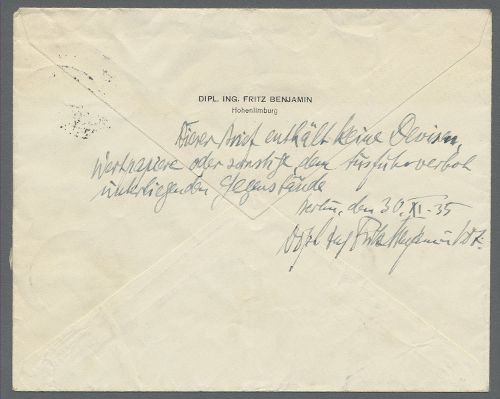 DIPL. ING. FRITZ BENJAMIN
Hohenlimburg
Dieser Brief enthält keine Devisen,
Wertpapiere oder sonstige, dem Ausfuhrverbot
unterliegenden Gegenstände
Berlin, den 30. XI. 35
Dipl. Ing. Fritz Benjamin